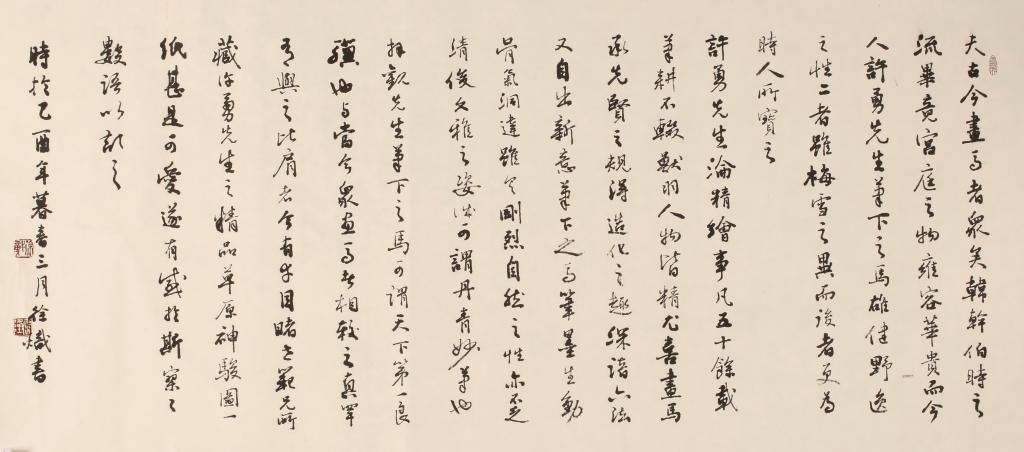 夫古今畫馬者眾矣韓幹伯時之
流畢竟宮庭之物雍容華貴而今
人許勇先生筆下之馬雄健野逸
之性二者雖梅雪之異而後者更為
時人所寶之
許勇先生淪精繪事凡五十餘載
筆耕不輟獸羽人物皆精尤喜畫馬
承先賢之規得造化之趣深諳六法
又自出新意筆下之馬筆墨生動
骨氣洞達雖呈剛烈自然之性亦不乏
清俊文雅之姿誠可謂丹青妙筆也
拜觀先生筆下之馬可謂天下第一良
驥也與當今眾畫馬者相較之真罕
有與之比肩者今有幸目睹老範兄所
藏許勇先生之精品草原神駿圖一
紙甚是可愛遂有感於斯寥寥
數語以記之
時於乙酉年暮春三月徐熾書